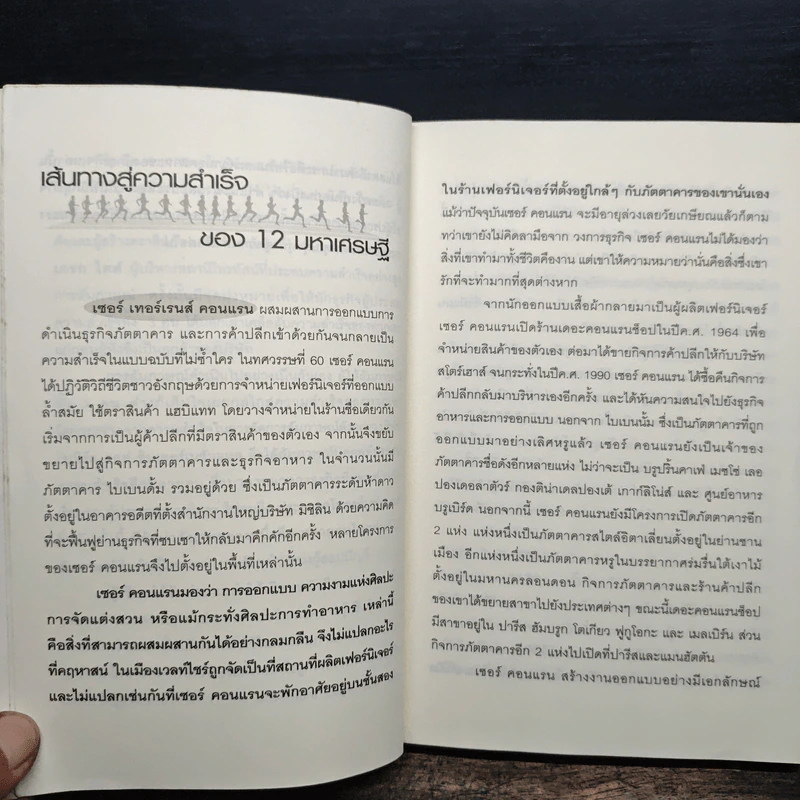 เส้นทางสู่ความสำเร็จ
ของ 12 มหาเศรษฐี
เซอร์ เทอร์เรนส์ คอนแรน ผสมผสานการออกแบบการ
ดำเนินธุรกิจภัตตาคาร และการค้าปลีกเข้าด้วยกันจนกลายเป็น
ความสำเร็จในแบบฉบับที่ไม่ซ้ำใคร ในทศวรรษที่ 60 เซอร์ คอนแรน
ได้ปฏิวัติวิถีชีวิตชาวอังกฤษด้วยการจำหน่ายเฟอร์นิเจอร์ที่ออกแบบ
ล้ำสมัย ใช้ตราสินค้า แฮบิแทท โดยวางจำหน่ายในร้านชื่อเดียวกัน
เริ่มจากการเป็นผู้ค้าปลีกที่มีตราสินค้าของตัวเอง จากนั้นจึงขยับ
ขยายไปสู่กิจการภัตตาคารและธุรกิจอาหาร ในจำนวนนั้นมี
ภัตตาคาร ไบเบนดั้ม รวมอยู่ด้วย ซึ่งเป็นภัตตาคารระดับห้าดาว
ตั้งอยู่ในอาคารอดีตที่ตั้งสำนักงานใหญ่บริษัท มิชิลิน ด้วยความคิด
ที่จะฟื้นฟูย่านธุรกิจที่ซบเซาให้กลับมาคึกคักอีกครั้ง หลายโครงการ
ของเซอร์ คอนแรนจึงไปตั้งอยู่ในพื้นที่เหล่านั้น
เซอร์ คอนแรนมองว่า การออกแบบ ความงามแห่งศิลปะ
การจัดแต่งสวน หรือแม้กระทั่งศิลปะการทำอาหาร เหล่านี้
คือสิ่งที่สามารถผสมผสานกันได้อย่างกลมกลืน จึงไม่แปลกอะไร
ที่คฤหาสน์ ในเมืองเวลท์ไชร์ถูกจัดเป็นที่สถานที่ผลิตเฟอร์นิเจอร์
และไม่แปลกเช่นกันที่เซอร์ คอนแรนจะพักอาศัยอยู่บนชั้นสอง
ในร้านเฟอร์นิเจอร์ที่ตั้งอยู่ใกล้ๆ กับภัตตาคารของเขานั่นเอง
แม้ว่าปัจจุบันเซอร์ คอนแรน จะมีอายุล่วงเลยวัยเกษียณแล้วก็ตาม
ทว่าเขายังไม่คิดลามือจาก วงการธุรกิจ เซอร์ คอนแรนไม่ได้มองว่า
สิ่งที่เขาทำมาทั้งชีวิตคืองาน แต่เขาให้ความหมายว่านั่นคือสิ่งซึ่งเขา
รักที่จะทำมากที่สุดต่างหาก
จากนักออกแบบเสื้อผ้ากลายมาเป็นผู้ผลิตเฟอร์นิเจอร์
เซอร์ คอนแรนเปิดร้านเดอะคอนแรนช็อปในปีค.ศ. 1964 เพื่อ
จำหน่ายสินค้าของตัวเอง ต่อมาได้ขายกิจการค้าปลีกให้กับบริษัท
สโตร์เฮาส์ จนกระทั่งในปีค.ศ. 1990 เซอร์ คอนแรน ได้ซื้อคืนกิจการ
ค้าปลีกกลับมาบริหารเองอีกครั้ง และได้หันความสนใจไปยังธุรกิจ
อาหารและการออกแบบ นอกจาก ไบเบนนั้ม ซึ่งเป็นภัตตาคารที่ถูก
ออกแบบมาอย่างเลิศหรูแล้ว เซอร์ คอนแรนยังเป็นเจ้าของ
ภัตตาคารชื่อดังอีกหลายแห่ง ไม่ว่าจะเป็น บรูปริ้นคาเฟ่ เมซโซ่ เลอ
ปองเดอลาตัวร์ กองติน่าเดลปองเต้ เกาก์ลิโน่ส์ และ ศูนย์อาหาร
บรูเบิร์ด นอกจากนี้ เซอร์ คอนแรนยังมีโครงการเปิดภัตตาคารอีก
2 แห่ง แห่งหนึ่งเป็นภัตตาคารสไตล์อิตาเลี่ยนตั้งอยู่ในย่านชาน
เมือง อีกแห่งหนึ่งเป็นภัตตาคารหรูในบรรยากาศร่มรื่นใต้เงาไม้
ตั้งอยู่ในมหานครลอนดอน กิจการภัตตาคารและร้านค้าปลีก
ของเขาได้ขยายสาขาไปยังประเทศต่างๆ ขณะนี้เดอะคอนแรนช็อป
มีสาขาอยู่ใน ปารีส ฮัมบรูก โตเกียว ฟูกูโอกะ และ เมลเบิร์น ส่วน
กิจการภัตตาคารอีก 2 แห่งไปเปิดที่ปารีสและแมนฮัตตัน
เซอร์ คอนแรน สร้างงานออกแบบอย่างมีเอกลักษณ์